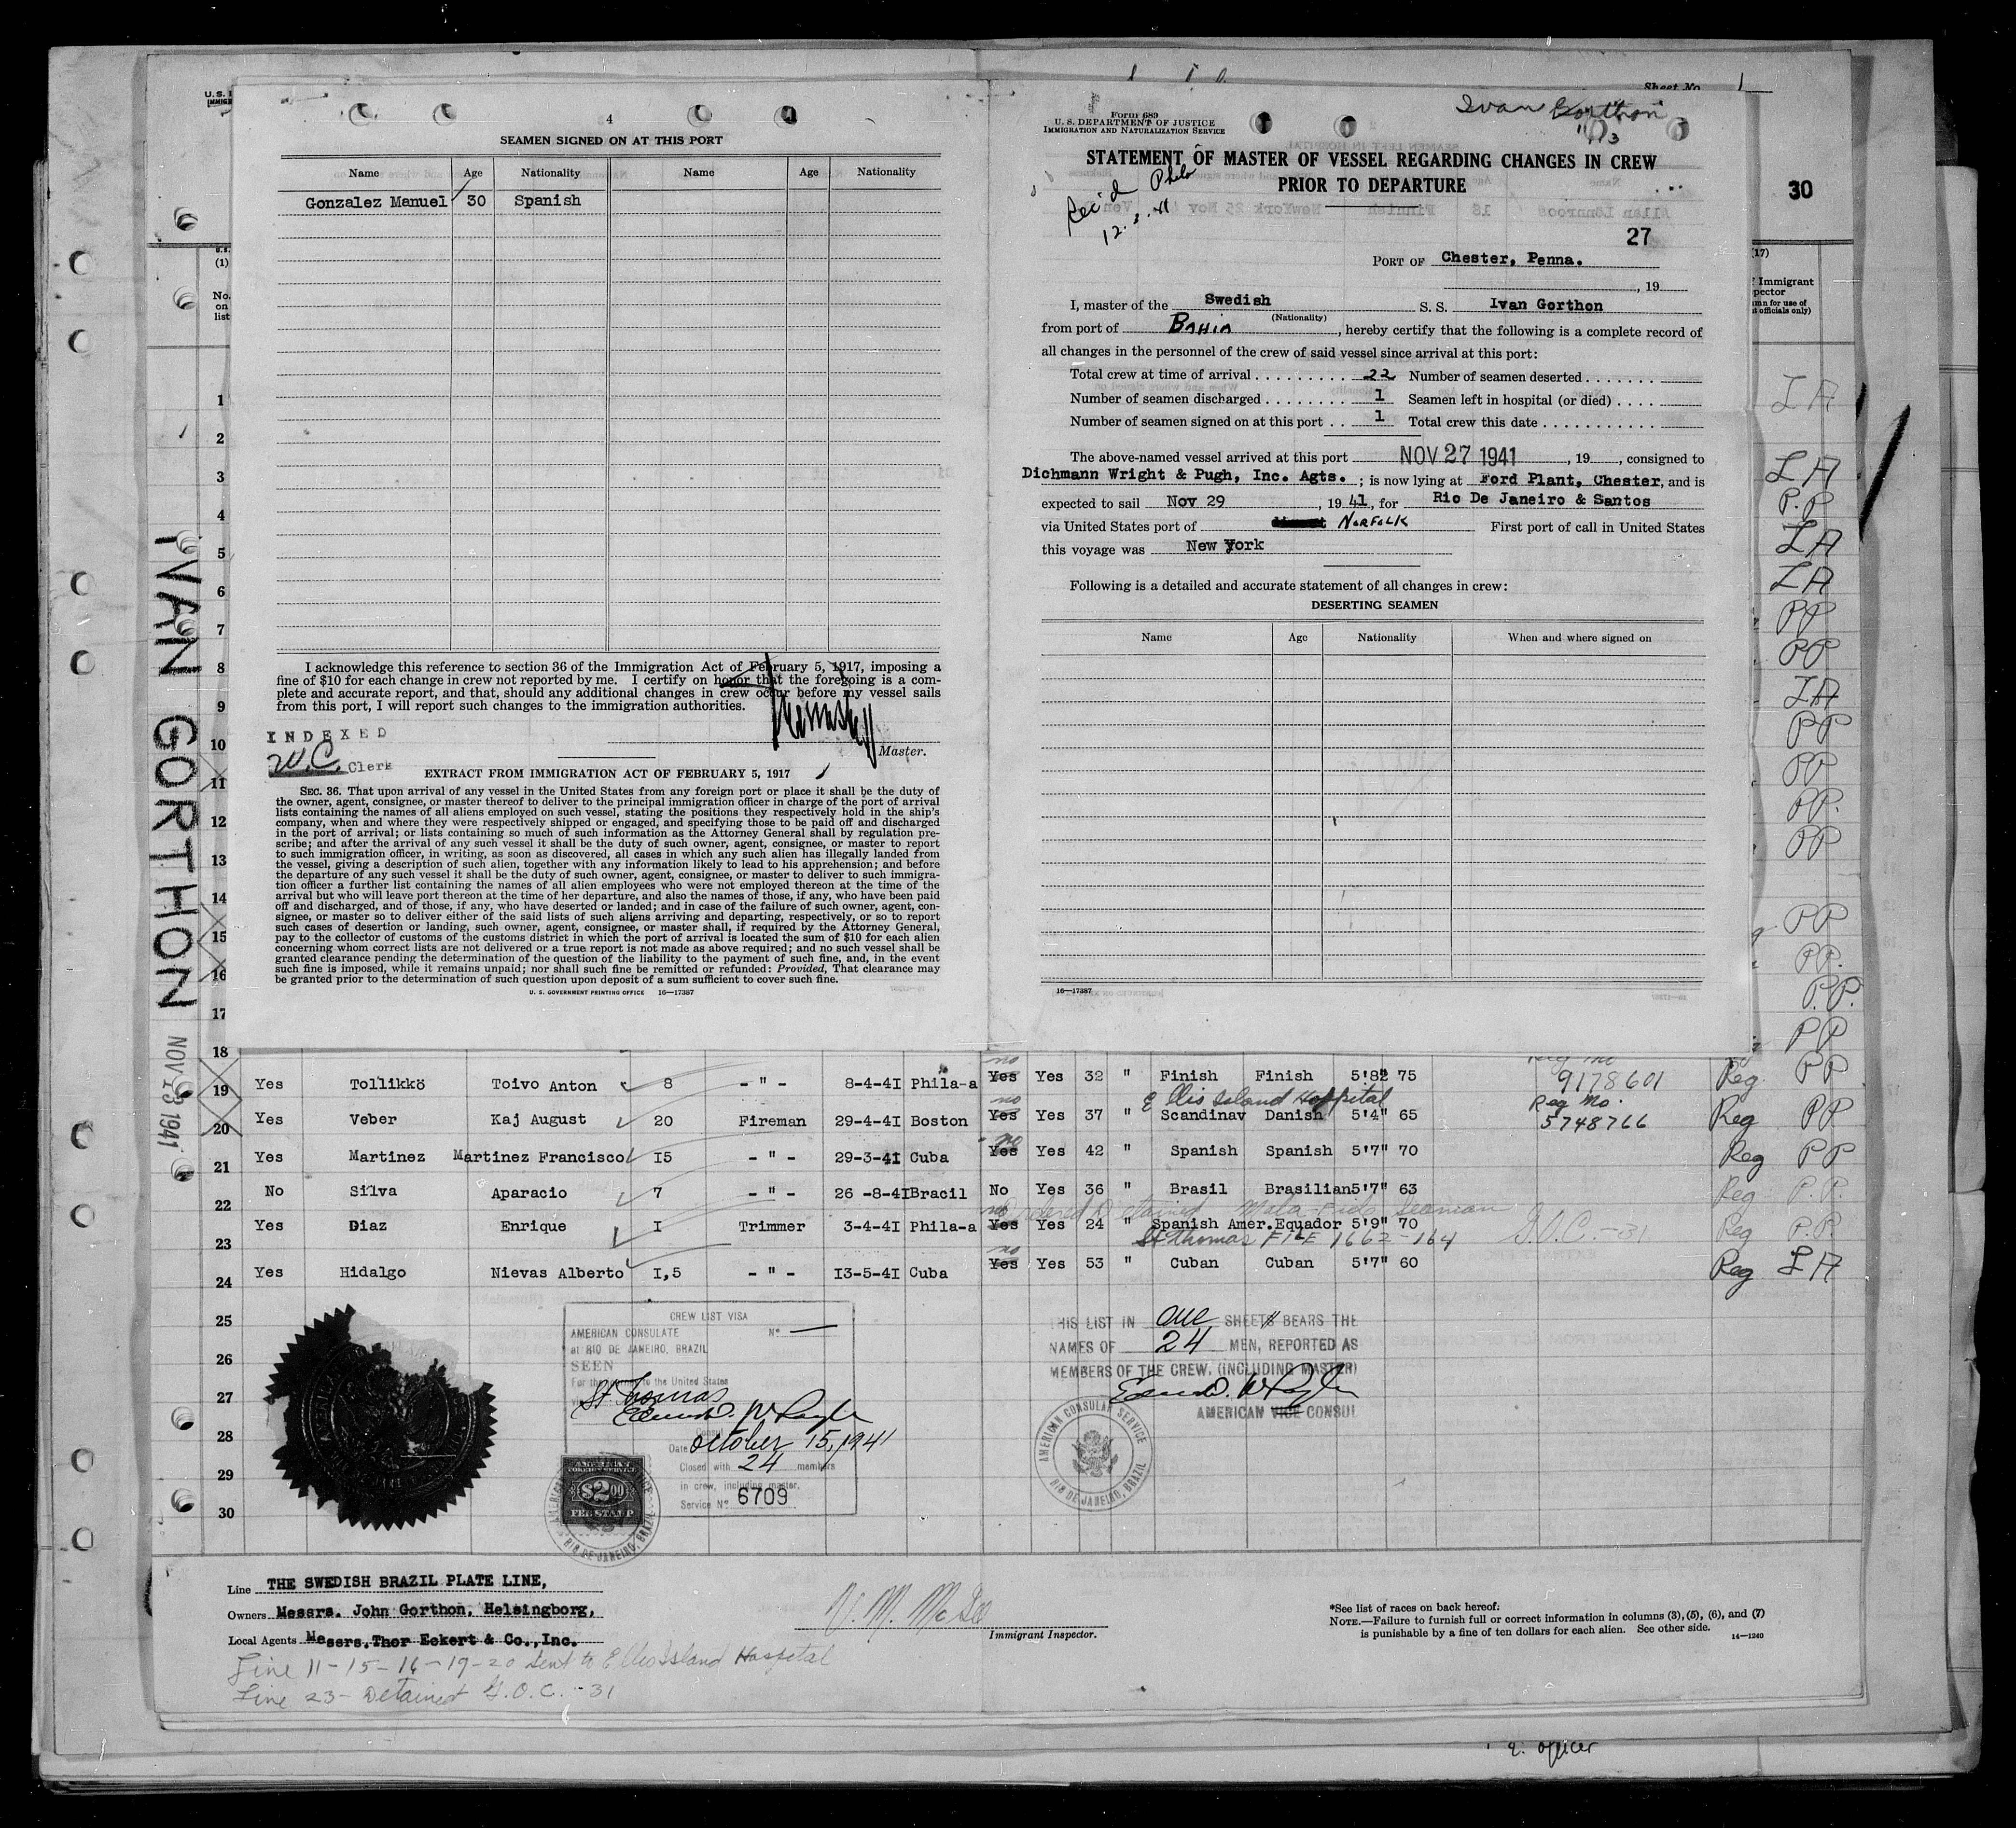 Sheet No. 1
30
4
SEAMEN SIGNED ON AT THIS PORT
Name Age Nationality Name Age Nationality
Gonzalez Manuel 30 Spanish
I acknowledge this reference to section 36 of the Immigration Act of February 5, 1917, imposing a
fine of $10 for each change in crew not reported by me. I certify on honor that the foregoing is a com-
plete and accurate report, and that, should any additional changes in crew occur before my vessel sails
from this port, I will report such changes to the immigration authorities.
INDEXED
W.C. Clerk
Master.
EXTRACT FROM IMMIGRATION ACT OF FEBRUARY 5, 1917
SEC. 36. That upon arrival of any vessel in the United States from any foreign port or place it shall be the duty of
the owner, agent, consignee, or master thereof to deliver to the principal immigration officer in charge of the port of arrival
lists containing the names of all aliens employed on such vessel, stating the positions they respectively hold in the ship's
company, when and where they were respectively shipped or engaged, and specifying those to be paid off and discharged
in the port of arrival; or lists containing so much of such information as the Attorney General shall by regulation pre-
scribe; and after the arrival of any such vessel it shall be the duty of such owner, agent, consignee, or master to report
to such immigration officer, in writing, as soon as discovered, all cases in which any such alien has illegally landed from
the vessel, giving a description of such alien, together with any information likely to lead to his apprehension; and before
the departure of any such vessel it shall be the duty of such owner, agent, consignee, or master to deliver to such immigra-
tion officer a further list containing the names of all alien employees who were not employed thereon at the time of the
arrival but who will leave port thereon at the time of her departure, and also the names of those, if any, who have been paid
off and discharged, and of those, if any, who have deserted or landed; and in case of the failure of such owner, agent, con-
signee, or master so to deliver either of the said lists of such aliens arriving and departing, respectively, or so to report
such cases of desertion or landing, such owner, agent, consignee, or master shall, if required by the Attorney General,
pay to the collector of customs of the customs district in which the port of arrival is located the sum of $10 for each alien
concerning whom correct lists are not delivered or a true report is not made as above required; and no such vessel shall be
granted clearance pending the determination of the question of the liability to the payment of such fine, and, in the event
such fine is imposed, while it remains unpaid; nor shall such fine be remitted or refunded: Provided, That clearance may
be granted prior to the determination of such question upon deposit of a sum sufficient to cover such fine.
U. S. GOVERNMENT PRINTING OFFICE 16—17387
Ivan Gorthon
Form 689
U. S. DEPARTMENT OF JUSTICE
IMMIGRATION AND NATURALIZATION SERVICE
STATEMENT OF MASTER OF VESSEL REGARDING CHANGES IN CREW
PRIOR TO DEPARTURE
Rec'd Phila
27
PORT OF Chester, Penna.
, 19
I, master of the Swedish S. S. Ivan Gorthon
(Nationality)
from port of BAHIA , hereby certify that the following is a complete record of
all changes in the personnel of the crew of said vessel since arrival at this port:
Total crew at time of arrival 22 Number of seamen deserted
Number of seamen discharged 1 Seamen left in hospital (or died)
Number of seamen signed on at this port 1 Total crew this date
The above-named vessel arrived at this port NOV 27 1941 , 19 , consigned to
Dichmann Wright & Pugh, Inc. Agts. ; is now lying at Ford Plant, Chester, and is
expected to sail Nov 29 , 1941, for Rio De Janeiro & Santos
via United States port of NORFOLK First port of call in United States
this voyage was New York
Following is a detailed and accurate statement of all changes in crew:
DESERTING SEAMEN
Name Age Nationality When and where signed on
16—17387
IVAN GORTHON
NOV 13 1941
(1)
No. on list
(17)
1 L A
2
3 L A
P.P
4 L A
5 L A
6 PP
7 PP
8 L A
9 PP
10 PP
11 PP.
12 PP
13
14 PP
15 PP.
16 P.P.
17 PP
18
19 Yes Tollikkö Toivo Anton 8 - " - 8-4-41 Phila-a Yes no Yes 32 " Finish Finish 5'8½" 75 9178601 Reg PP
Ellis Island Hospital
20 Yes Veber Kaj August 20 Fireman 29-4-41 Boston Yes no Yes 37 " Scandinav Danish 5'4" 65 Reg No. 5748766 Reg PP
21 Yes Martinez Martinez Francisco 15 - " - 29-3-41 Cuba Yes no Yes 42 " Spanish Spanish 5'7" 70 Reg PP
22 No Silva Aparacio 7 - " - 26 -8-41 Bracil No Yes 36 " Brasil Brasilian 5'7" 63 Reg P.P.
Ordered Detained Mala-Fide Seaman
23 Yes Diaz Enrique I Trimmer 3-4-41 Phila-a Yes no Yes 24 " Spanish Amer. Equador 5'9" 70 Reg P.P.
St Thomas FILE 1662-164 G.O.C.-31
24 Yes Hidalgo Nievas Alberto I,5 - " - 13-5-41 Cuba Yes no Yes 53 " Cuban Cuban 5'7" 60 Reg L A
25
26
27
28
29
30
CREW LIST VISA
AMERICAN CONSULATE No —
at RIO DE JANEIRO, BRAZIL
SEEN
For the journey to the United States
St Thomas
Date October 15, 1941
Closed with 24 members
in crew, including master.
Service No 6709
AMERICAN FOREIGN SERVICE
$2.00
FEE STAMP
RIO DE JANEIRO, BRAZIL
THIS LIST IN one SHEETS BEARS THE
NAMES OF 24 MEN, REPORTED AS
MEMBERS OF THE CREW, (INCLUDING MASTER)
AMERICAN VICE CONSUL
AMERICAN CONSULAR SERVICE
RIO DE JANEIRO, BRAZIL
Line THE SWEDISH BRAZIL PLATE LINE,
Owners Messrs. John Gorthon, Helsingborg,
Local Agents Messrs. Thor Eckert & Co., Inc.
Immigrant Inspector.
*See list of races on back hereof.
NOTE.—Failure to furnish full or correct information in columns (3), (5), (6), and (7)
is punishable by a fine of ten dollars for each alien. See other side. 14—1240
Line 11-15-16-19-20 Sent to Ellis Island Hospital
Line 23- Detained G.O.C.-31
officer